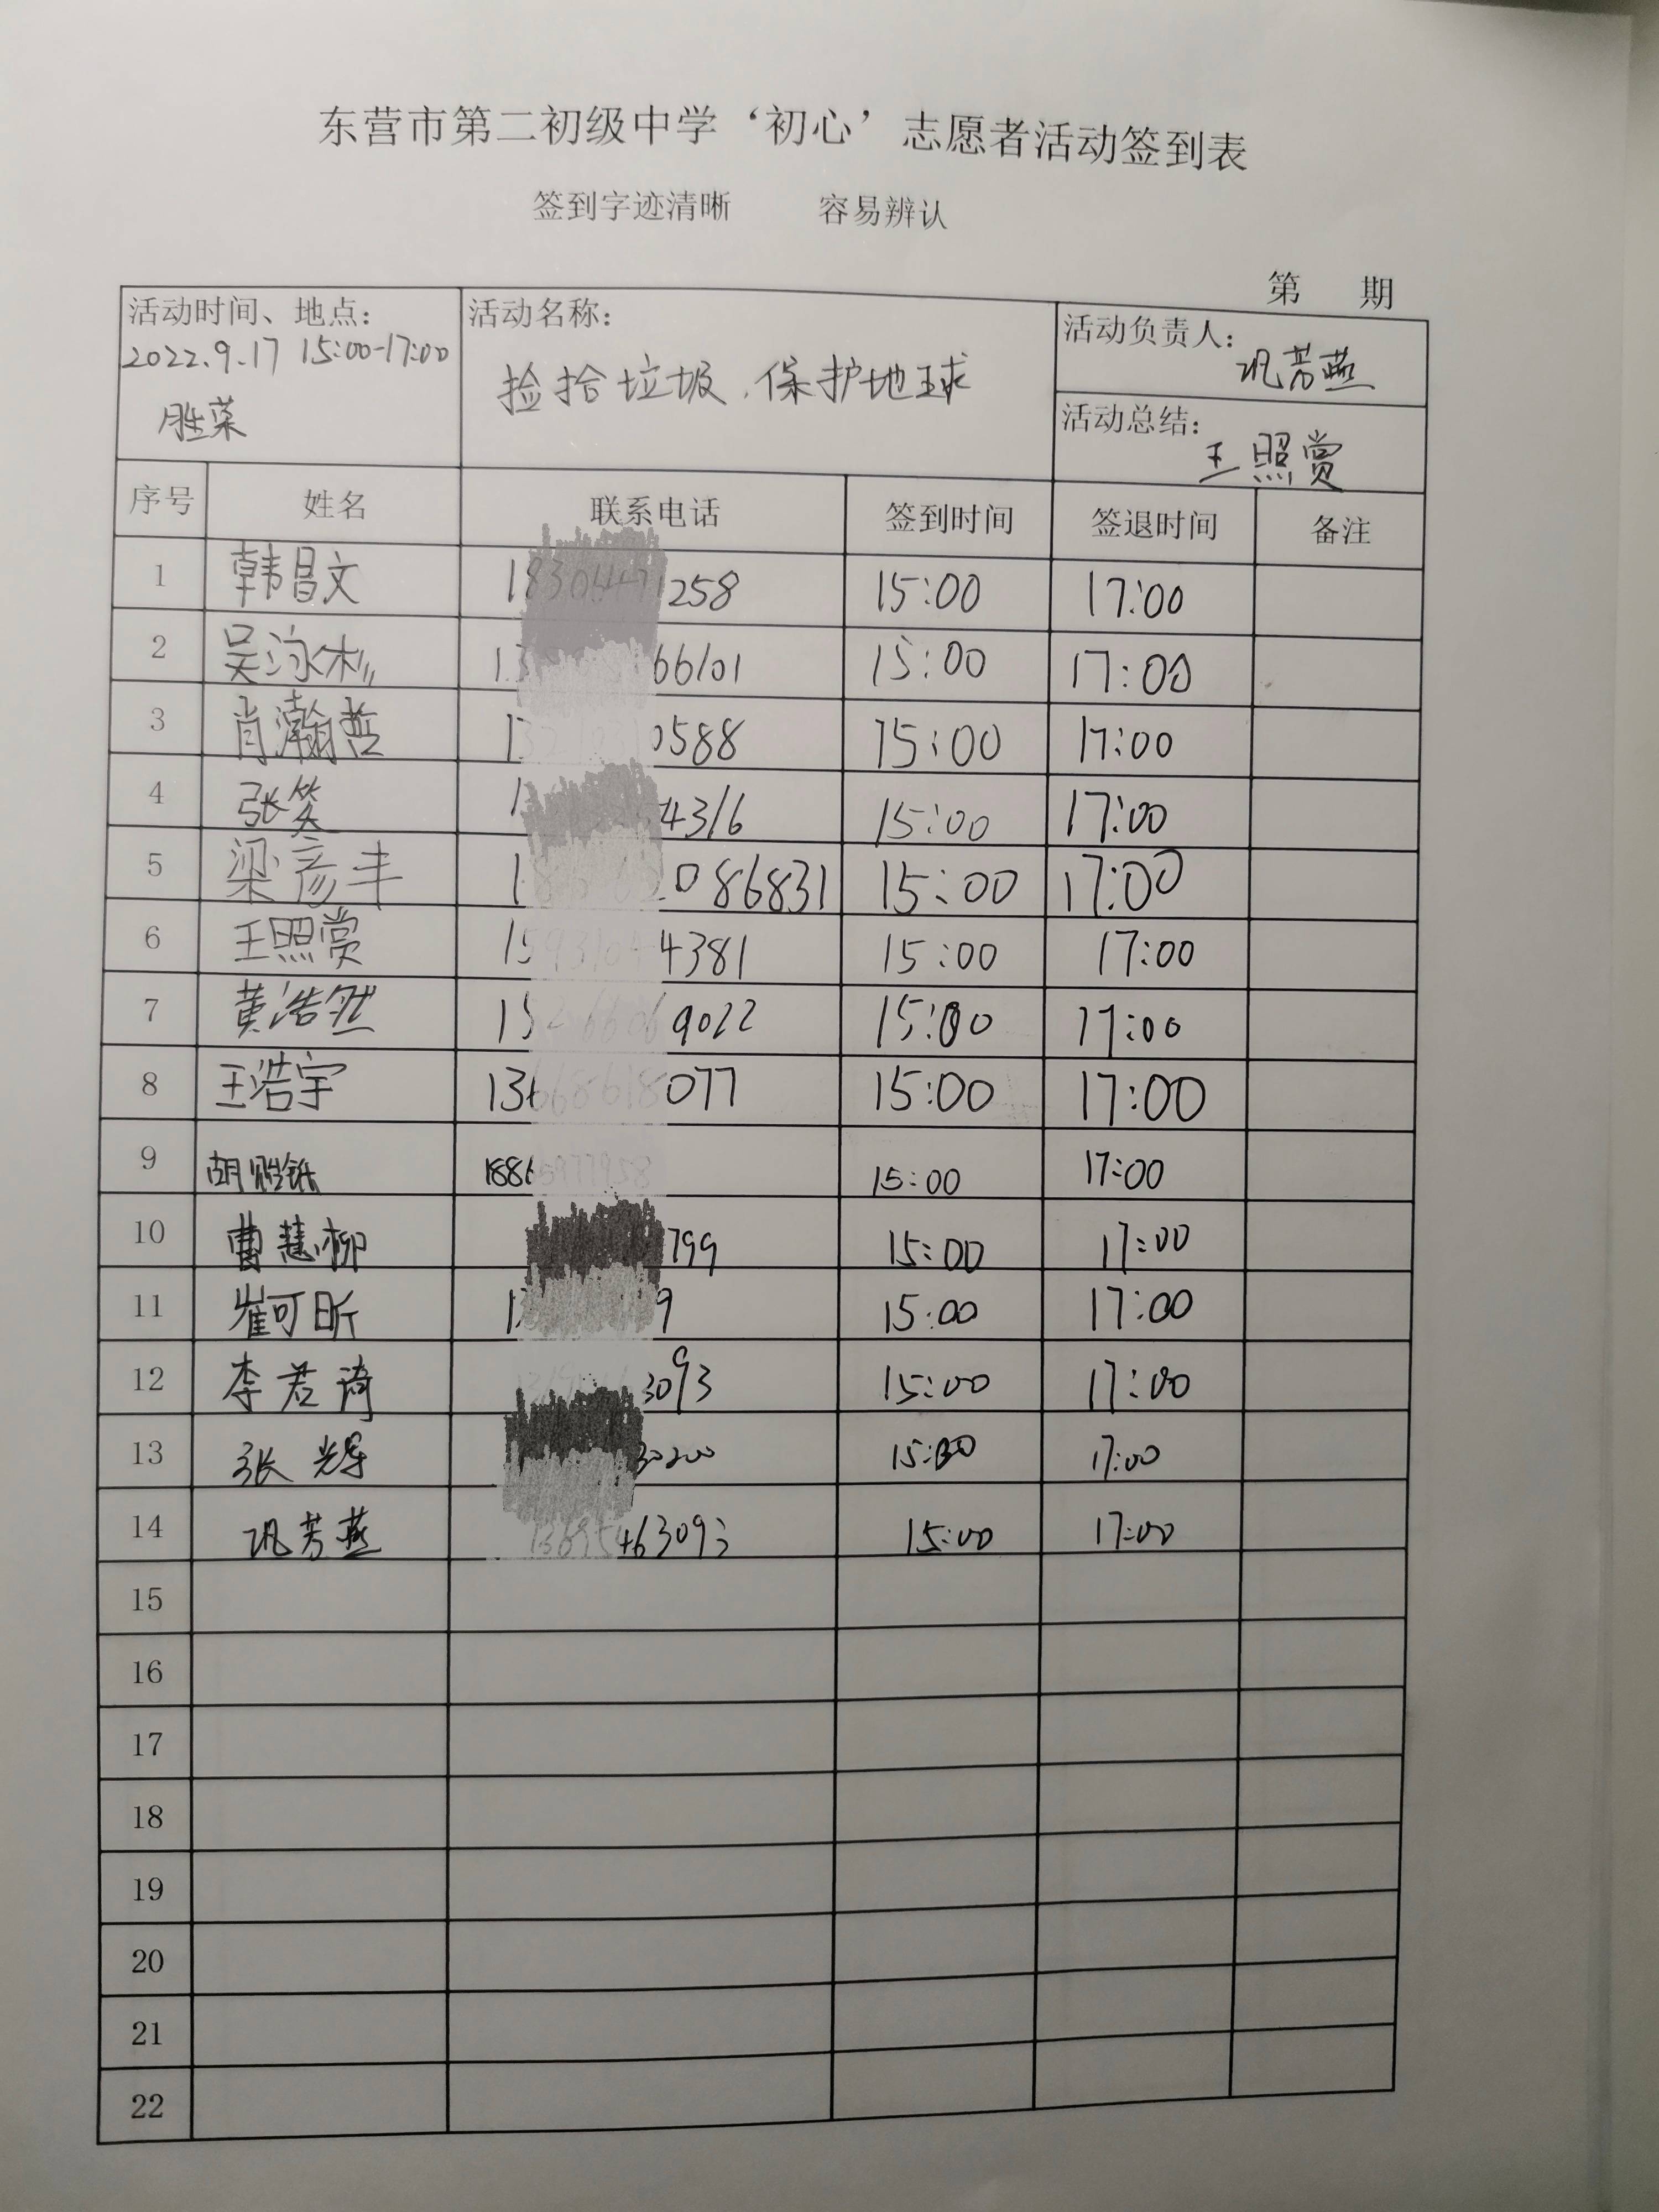 东营市第二初级中学‘初心’志愿者活动签到表
签到字迹清晰 容易辨认
第 期
活动时间、地点: 活动名称: 活动负责人: 巩芳燕
2022.9.17 15:00-17:00 捡拾垃圾、保护地球
胜菜 活动总结: 王照赏
序号 姓名 联系电话 签到时间 签退时间 备注
1 韩昌文 258 15:00 17:00
2 吴泳彬 66101 15:00 17:00
3 肖瀚哲 0588 15:00 17:00
4 张笑 4316 15:00 17:00
5 梁彦丰 086831 15:00 17:00
6 王照赏 4381 15:00 17:00
7 黄浩然 9022 15:00 17:00
8 王浩宇 077 15:00 17:00
9 胡 15:00 17:00
10 曹慧柳 799 15:00 17:00
11 崔可昕 9 15:00 17:00
12 李君琦 3093 15:00 17:00
13 张辉 30200 15:00 17:00
14 巩芳燕 463093 15:00 17:00
15
16
17
18
19
20
21
22